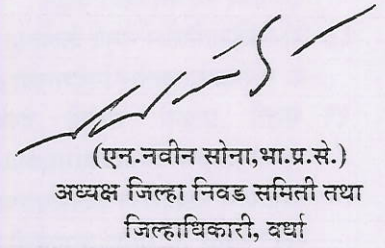 (एन.नवीन सोना,भा.प्र.से.)
अध्यक्ष जिल्हा निवड समिती तथा
जिल्हाधिकारी, वर्धा